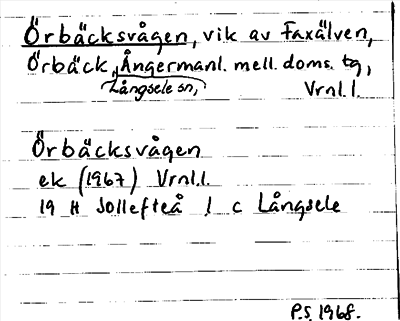 Örbäcksvågen, vik av Faxälven,
Örbäck, Ångermanl. mell. doms. tg,
Långsele sn,
Vrnl.l.
Örbäcksvågen
ek (1967) Vrnl.l.
19 H Sollefteå 1 c Långsele
P.S. 1968.